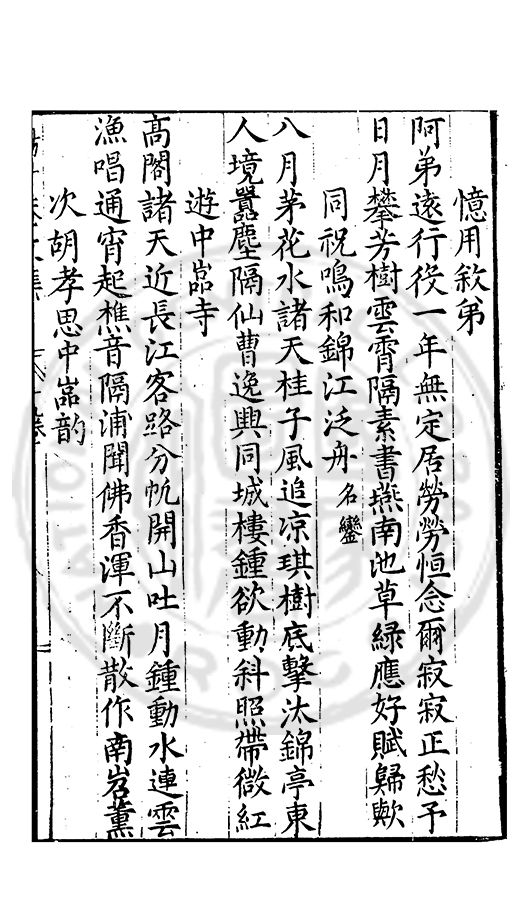 憶用敘弟
阿弟遠行役一年無定居勞勞恒念爾寂寂正愁予
日月攀芳樹雲霄隔素書燕南池草綠應好賦歸歟
同祝鳴和錦江泛舟名鑾
八月茅花水諸天桂子風追凉琪樹底擊汰錦亭東
人境嚣塵隔仙曹逸興同城樓鍾欲動斜照帶微紅
遊中嵓寺
高閣諸天近長江客路分帆開山吐月鍾動水連雲
漁唱通宵起樵音隔浦聞佛香渾不斷散作南岩薰
次胡孝思中嵓韵